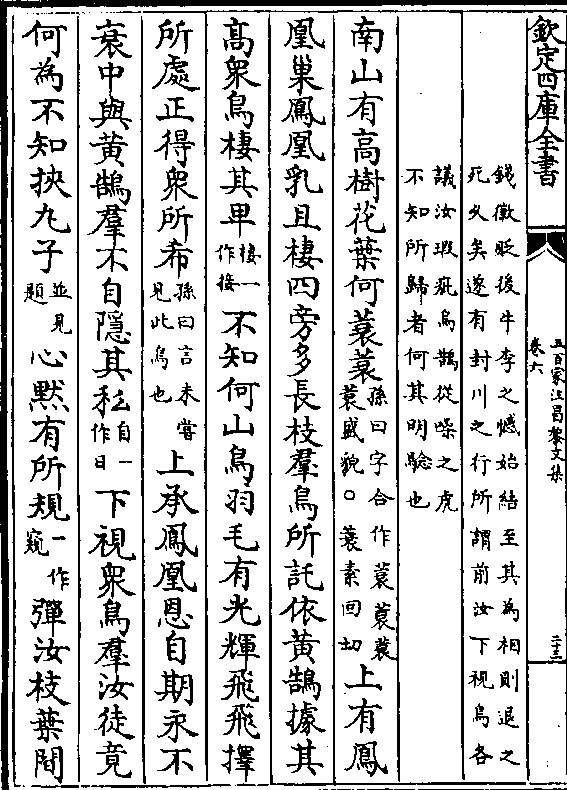 欽定四庫全書
五百家注昌黎文集
卷六
二十三
錢徽貶後牛李之憾始結至其為相則退之
死久矣遂有封川之行所謂前汝下視鳥各
議汝瑕疵烏鵲從噪之虎
不知所歸者何其明驗也
南山有高樹花葉何蓑蓑孫曰字合作蓑蓑蓑蓑盛貌○蓑素回切上有鳳
凰巢鳳凰乳且棲四旁多長枝羣鳥所託依黃鵠據其
髙衆鳥棲其卑棲一作接不知何山鳥羽毛有光輝飛飛擇
所處正得衆所希孫曰言未嘗見此鳥也上承鳳凰恩自期永不
衰中與黃鵠羣不自隱其私自一作日下視衆鳥羣汝徒竟
何為不知挾丸子並見題心黙有所規一作窺彈汝枝葉間